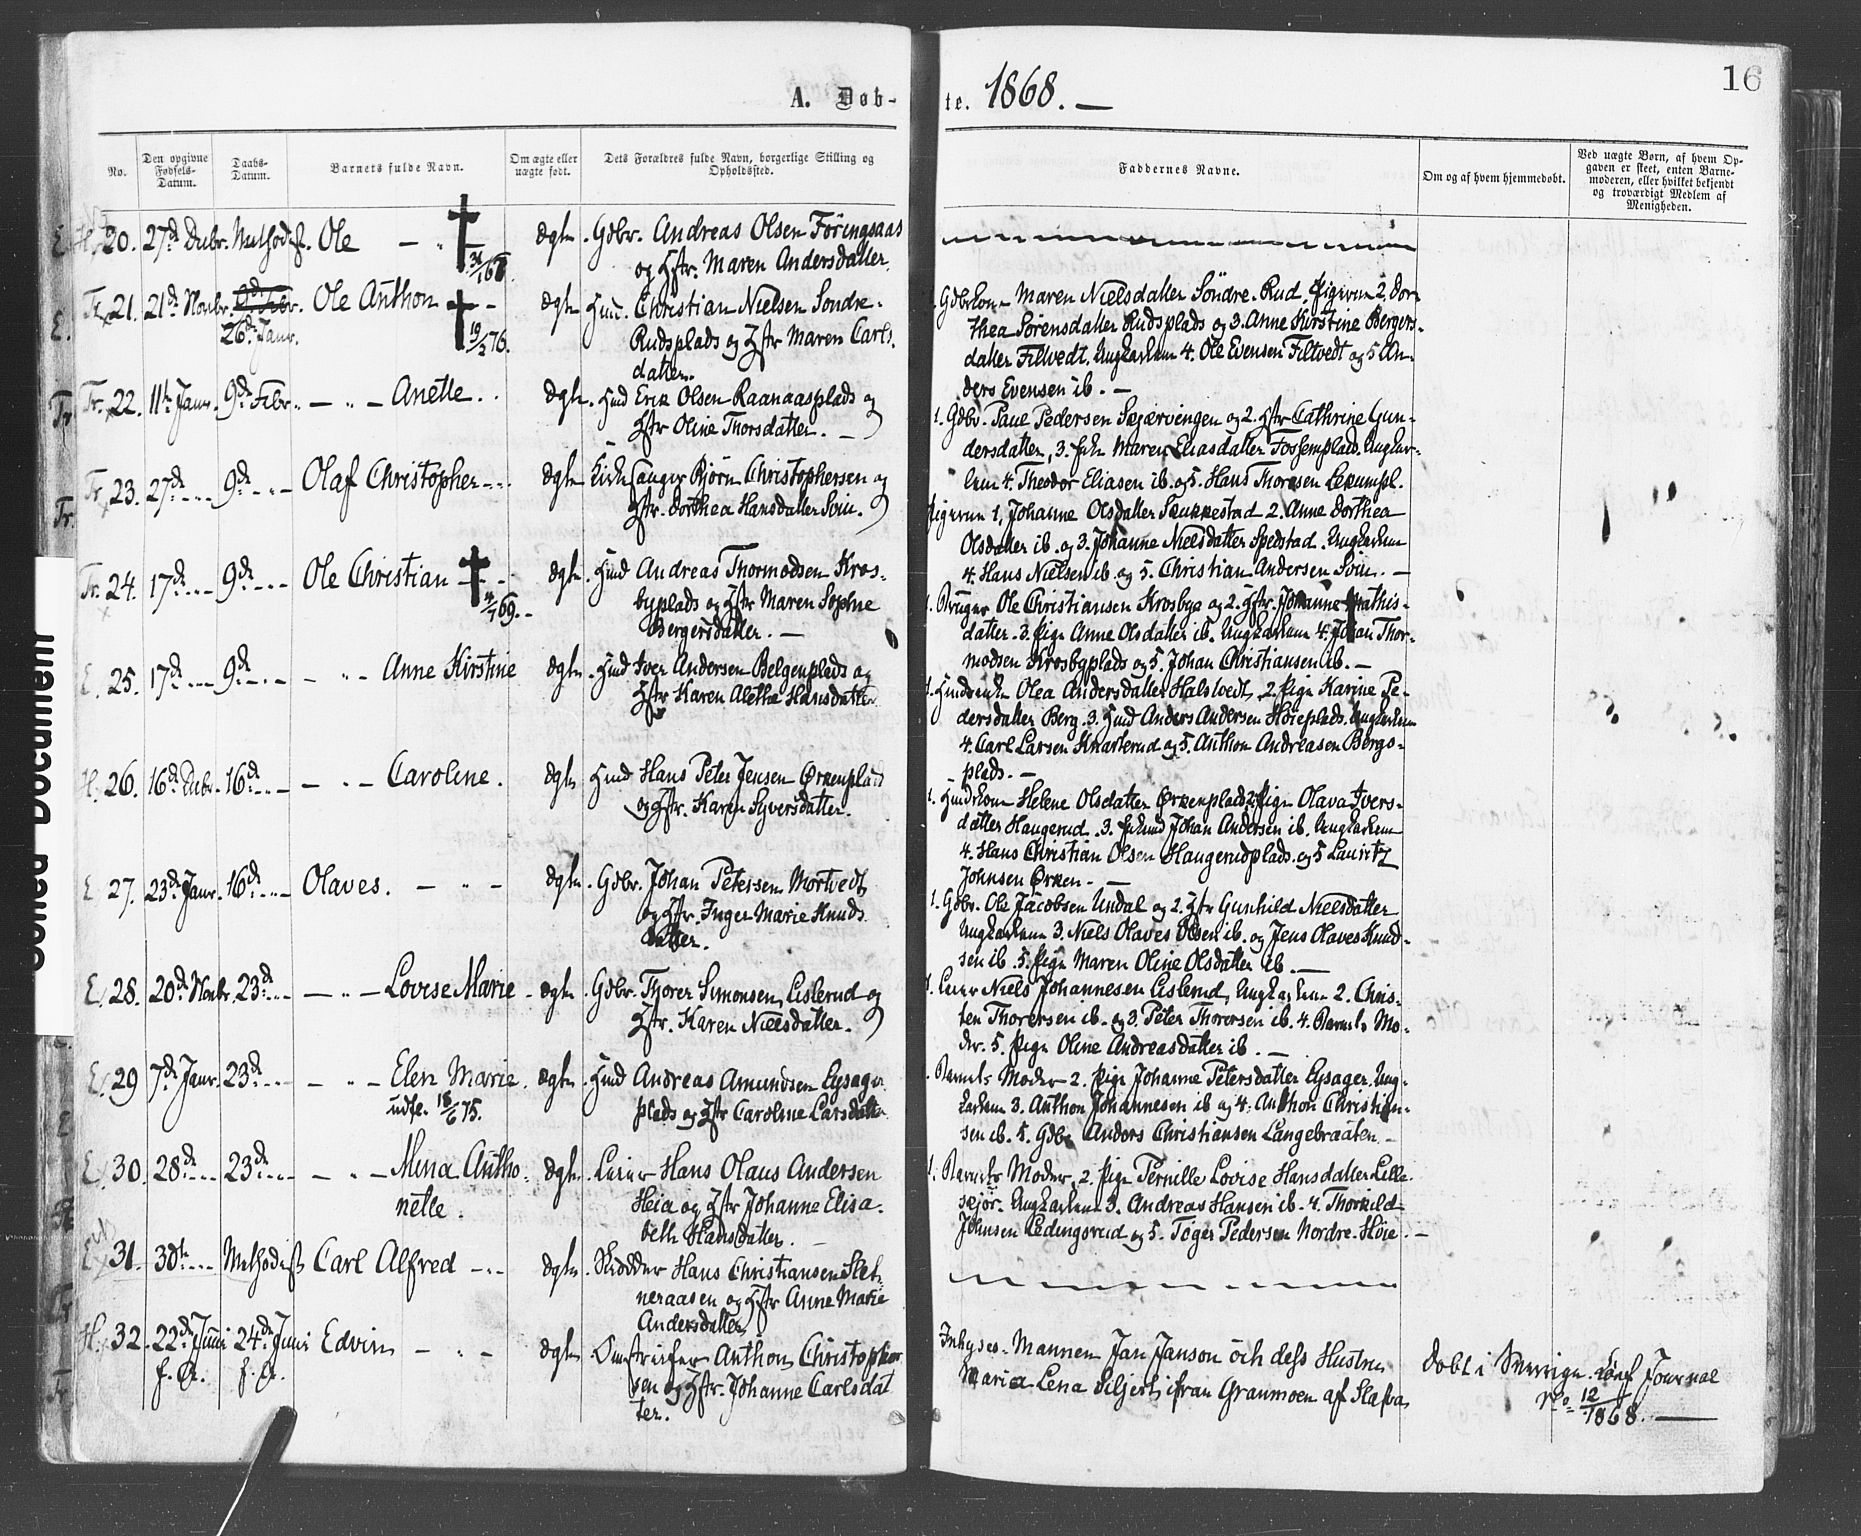 A. Døb-
te. 1868. —
16
No.
Den opgivne Fødsels-Datum.
Daabs-Datum.
Barnets fulde Navn.
Om ægte eller uægte født.
Dets Forældres fulde Navn, borgerlige Stilling og Opholdssted.
Faddernes Navne.
Om og af hvem hjemmedøbt.
Ved uægte Børn, af hvem Op-
gaven er skeet, enten Barne-
moderen, eller hvilket bekjendt
og troværdigt Medlem af
Menigheden.
20. 27de Decbr. Methodist. Ole
ægte. Gdbr. Andreas Olsen Føringsaas
og Hstr. Maren Andersdatter.
21. 21de Novbr. 26de Janr. Ole Anthon 19/2 76.
ægte Hmd. Christian Nielsen Søndre-
Rudsplads og Hstr Maren Carls-
datter.
Gdbrkone Maren Nielsdatter Søndre-Rud, Pigerne 2, Dor-
thea Sørensdatter Rudsplads og 3. Anne Kirstine Bergers-
datter Filtvedt. Ungkarlene 4. Ole Evensen Filtvedt og 5 An-
ders Evensen ib. —
22. 11te Janr. 9de Febr. — " — Anette.
ægte. Hmd Erik Olsen Raanaasplads og
Hstr Oline Thorsdatter. —
1. Gdbr. Paul Pedersen Skjærvingen og 2. Hstr Cathrine Gun-
dersdatter, 3. Maren Eliasdatter Fossemplads. Ungkar-
lene 4. Theodor Eliasen ib. og 5. Hans Thoresen
23. 27de 9de Olaf Christopher
ægte Kirkesanger Bjørn Christophersen og
Hstr. Dorthea Hansdatter Svin.
Pigerne 1. Johanne Olsdatter Skukkestad 2. Anne Dorthea
Olsdatter ib. og 3. Johanne Nielsdatter Spedstad. Ungkarlene
4. Hans Nielsen ib og 5. Christian Andersen Svin. —
24. 17de 9de Ole Christian
ægte. Hmd Andreas Thormodsen Kros-
byplads og Hstr Maren Sophie
Bergersdatter. —
1. Bruger Ole Christiansen Krosbye og 2. Hstr. Johanne Mathis-
datter. 3. Pige Anne Olsdatter ib. Ungkarlene 4. Johan Thor-
modsen Krosbyplads og 5. Johan Christiansen ib. —
25. 17de 9de — " — Anne Kirstine
ægte. Hmd Iver Andersen Belgenplads og
Hstr Karen Alethe Hansdatter
1. Olea Andersdatter Halstvedt, 2. Pige Karine Pe-
dersdatter Berg. 3. Hmd Anders Andersen Høieplads. Ungkarlene
4. Carl Larsen Knarterud og 5. Anthon Andreasen Bergs-
plads. —
26. 16de Decbr. 16de — " — Caroline.
ægte Hmd Hans Peter Jensen Ørkenplads
og Hstr. Karen Syversdatter.
1. Helene Olsdatter Ørkenplads 2. Pige Olava Ivers-
datter Haugerud. 3. Johan Andersen ib. Ungkarlene
4. Hans Christian Olsen Haugerudplads og 5 Lauritz
Johnsen Ørken. —
27. 23de Janr. 16de Olaves. — " —
ægte. Gdbr. Johan Petersen Mortvedt
og Hstr. Inger Marie Knuds-
datter.
1. Gdbr. Ole Jacobsen Undal og 2. Hstr Gunhild Nielsdatter
Ungkarlene 3. Niels Olaves Olsen ib. og Jens Olaves Knud-
sen ib. 5. Pige Maren Oline Olsdatter ib. —
28. 20de Novbr. 23de — " — Lovise Marie
ægte. Gdbr. Thorer Simonsen Lislerud og
Hstr. Karen Nielsdatter.
1. Leier Niels Johannesen Lislerud, Ungkarlene 2. Chris-
ten Thorersen ib. og 3. Peter Thorersen ib. 4. Barnets Mo-
der. 5. Pige Oline Andreasdatter ib. —
29 7de Janr. 23de — " — Elen Marie.
udfl. 18/6 75.
ægte. Hmd Andreas Amundsen Eysager
plads og Hstr Caroline Larsdatter
1. Barnets Moder 2. Pige Johanne Petersdatter Eysager. Ung-
karlene 3. Anthon Johannesen ib og 4. Anthon Christian-
sen ib. 5. Gdbr Anders Christiansen Langebraaten. —
30. 28de 23de — " — Mina Antho-
nette.
ægte. Leier Hans Olaus Andersen
Heia og Hstr Johanne Elisa-
beth Hansdatter. —
1. Barnets Moder, 2. Pige Pernille Lovise Hansdatter Lille-
sejør. Ungkarlene 3. Andreas Hansen ib. 4. Thorkild
Johnsen Ledingsrud og 5. Tøger Pedersen Nordre-Høie. —
31. 30te Methodist Carl Alfred
ægte. Skrædder Hans Christiansen Slet-
neraasen og Hstr Anne Marie
Andersdatter
32. 22de Juni f. A. 24de Juni f. A. Edvin — " —
ægte. Omstreifer Anthon Christopher-
sen og Hstr. Johanne Carlsdat-
ter.
Inhyses-Mannen Jan Janson och dess Hustru
Maria Lena Siljert ifran Granmoen af
Døbt i Sverrige. Journal
No. 12/1868. —